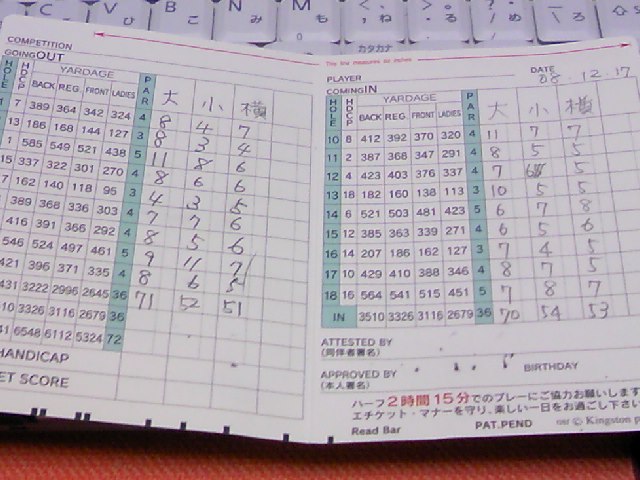 C V B N M
そ ひ こ み も ね る め ろ
カタカナ
COMPETITION
GOING OUT
HOLE HDCP YARDAGE PAR 大 小 横
BACK REG. FRONT LADIES
1 7 389 364 342 324 4 8 4 7
13 186 168 144 127 3 8 3 4
1 585 549 521 438 5 11 8 6
15 337 322 301 270 4 8 6 6
7 162 140 118 95 3 4 3 5
389 368 336 303 4 7 7 6
416 391 366 292 4 8 5 6
546 524 497 461 5 9 11 7
421 396 371 335 4 8 6 5
431 3222 2996 2645 36 71 52 51
10 3326 3116 2679 36
41 6548 6112 5324 72
HANDICAP
ET SCORE
PLAYER DATE 08.12.17
COMING IN
HOLE HDCP YARDAGE PAR 大 小 横
BACK REG. FRONT LADIES
10 8 412 392 370 320 4 11 7 7
11 2 387 366 347 291 4 8 5 5
12 4 423 403 376 337 4 7 5
13 18 182 160 138 113 3 10 5 5
14 6 521 503 481 423 5 6 7 8
15 12 385 363 339 271 4 6 5 6
16 14 207 186 162 127 3 7 4 5
17 10 429 410 388 346 4 8 7 5
18 16 564 541 515 451 5 7 8 7
IN 3510 3326 3116 2679 36 70 54 53
ATTESTED BY
(同伴者署名)
APPROVED BY BIRTHDAY
(本人署名)
ハーフ2時間15分でのプレーにご協力お願いします
エチケット・マナーを守り、楽しい一日をお過ごし下さい
Read Bar PAT.PEND © Kingston